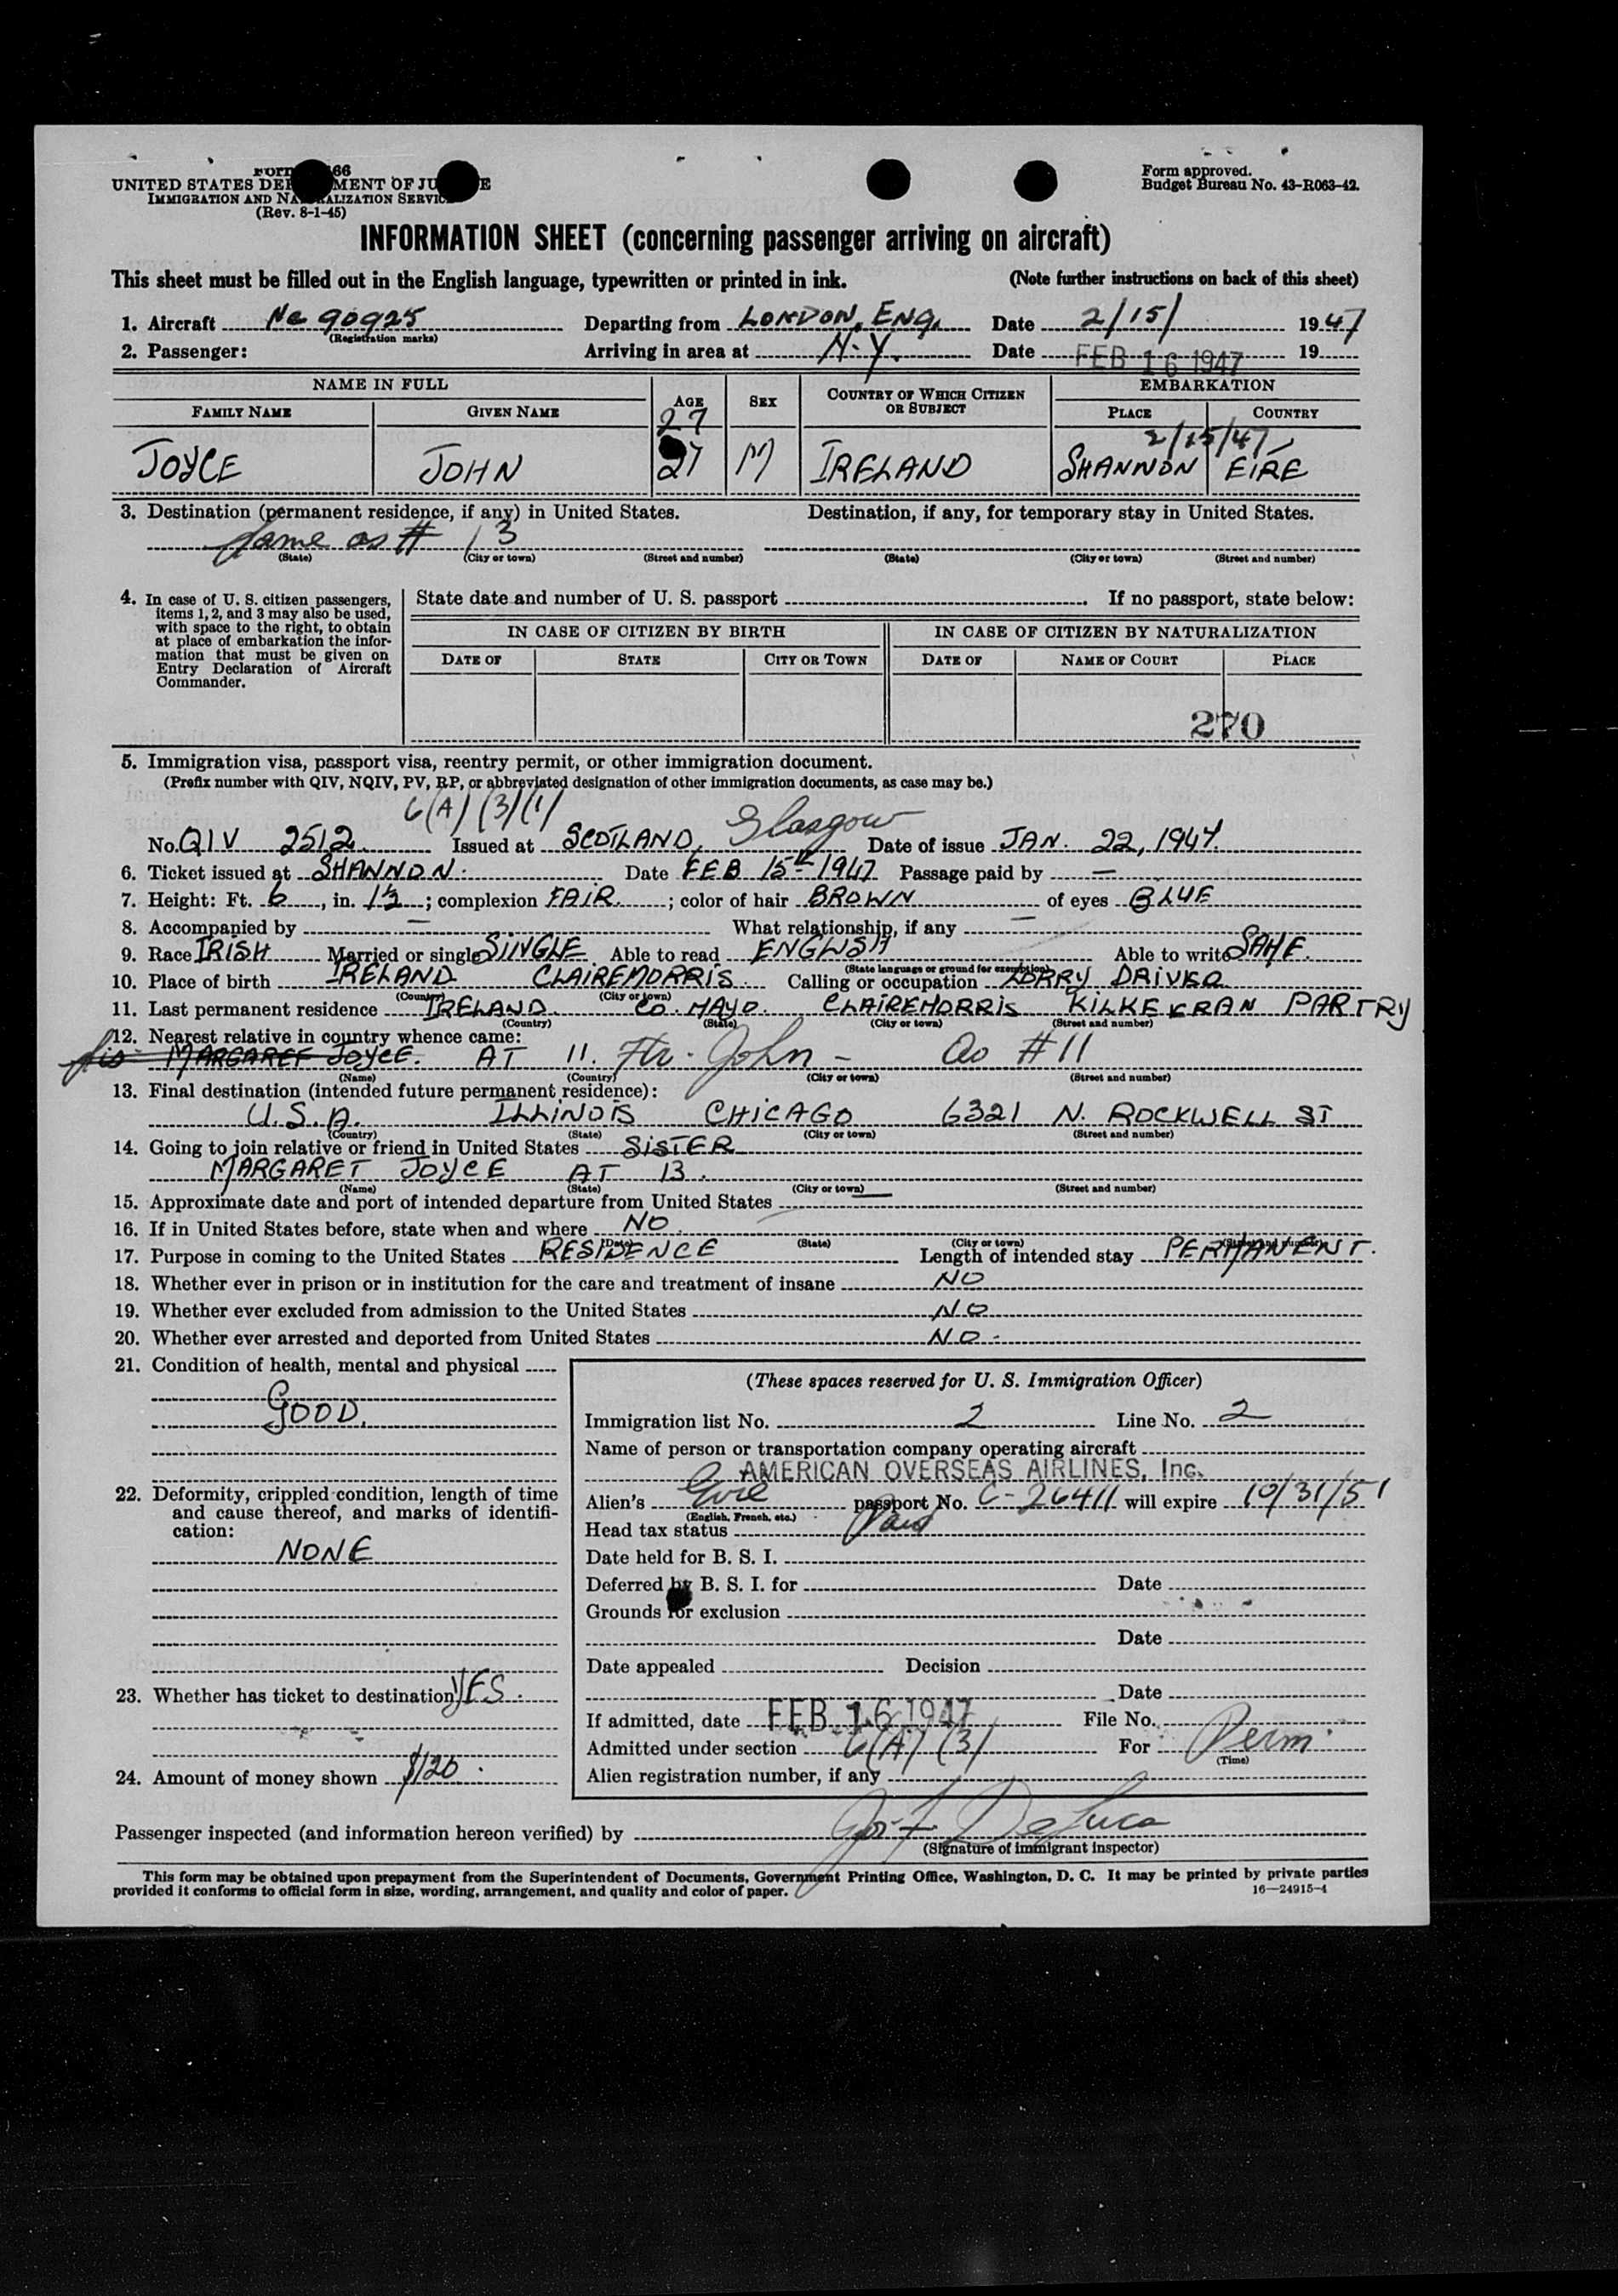 Form 66
UNITED STATES DEPARTMENT OF JUSTICE
IMMIGRATION AND NATURALIZATION SERVICE
(Rev. 8-1-45)
Form approved.
Budget Bureau No. 43-R063-42.
INFORMATION SHEET (concerning passenger arriving on aircraft)
This sheet must be filled out in the English language, typewritten or printed in ink. (Note further instructions on back of this sheet)
1. Aircraft Nc 90925 Departing from LONDON, ENG. Date 2/15/ 1947
(Registration marks)
2. Passenger: Arriving in area at N.Y. Date FEB 16 1947 19
NAME IN FULL AGE SEX COUNTRY OF WHICH CITIZEN OR SUBJECT EMBARKATION
FAMILY NAME GIVEN NAME PLACE COUNTRY
27 2/15/47
JOYCE JOHN 27 M IRELAND SHANNON EIRE
3. Destination (permanent residence, if any) in United States. Destination, if any, for temporary stay in United States.
Same as # 13
(State) (City or town) (Street and number) (State) (City or town) (Street and number)
4. In case of U. S. citizen passengers,
items 1, 2, and 3 may also be used,
with space to the right, to obtain
at place of embarkation the infor-
mation that must be given on
Entry Declaration of Aircraft
Commander.
State date and number of U. S. passport If no passport, state below:
IN CASE OF CITIZEN BY BIRTH IN CASE OF CITIZEN BY NATURALIZATION
DATE OF STATE CITY OR TOWN DATE OF NAME OF COURT PLACE
270
5. Immigration visa, passport visa, reentry permit, or other immigration document.
(Prefix number with QIV, NQIV, PV, RP, or abbreviated designation of other immigration documents, as case may be.)
6(A)(3)(1)
No. QIV 2512 Issued at SCOTLAND, Glasgow Date of issue JAN. 22, 1947.
6. Ticket issued at SHANNON. Date FEB 15th 1947 Passage paid by —
7. Height: Ft. 6, in. 1½; complexion FAIR.; color of hair BROWN of eyes BLUE
8. Accompanied by — What relationship, if any —
9. Race IRISH Married or single SINGLE Able to read ENGLISH Able to write SAME.
(State language or ground for exemption)
10. Place of birth IRELAND CLAIREMORRIS. Calling or occupation LORRY DRIVER
(Country) (City or town)
11. Last permanent residence IRELAND CO. MAYO. CLAIREMORRIS KILKEERAN PARTRY
(Country) (State) (City or town) (Street and number)
12. Nearest relative in country whence came:
sis- MARGARET JOYCE. AT 11. Ftr. John - as #11
(Name) (Country) (City or town) (Street and number)
13. Final destination (intended future permanent residence):
U.S.A. ILLINOIS CHICAGO 6321 N. ROCKWELL ST
(Country) (State) (City or town) (Street and number)
14. Going to join relative or friend in United States SISTER
MARGARET JOYCE AT 13.
(Name) (State) (City or town) (Street and number)
15. Approximate date and port of intended departure from United States —
16. If in United States before, state when and where NO.
(Date) (State) (City or town) (Street and number)
17. Purpose in coming to the United States RESIDENCE Length of intended stay PERMANENT.
18. Whether ever in prison or in institution for the care and treatment of insane NO
19. Whether ever excluded from admission to the United States NO
20. Whether ever arrested and deported from United States NO.
21. Condition of health, mental and physical
GOOD.
22. Deformity, crippled condition, length of time
and cause thereof, and marks of identifi-
cation:
NONE
23. Whether has ticket to destination YES.
24. Amount of money shown $120.
(These spaces reserved for U. S. Immigration Officer)
Immigration list No. 2 Line No. 2
Name of person or transportation company operating aircraft
AMERICAN OVERSEAS AIRLINES, Inc.
Alien's Eire passport No. C-26411 will expire 10/31/51
(English, French, etc.)
Head tax status Paid
Date held for B. S. I.
Deferred by B. S. I. for Date
Grounds for exclusion
Date
Date appealed Decision
Date
If admitted, date FEB 16 1947 File No.
Admitted under section 6(A)(3) For Perm.
(Time)
Alien registration number, if any
Passenger inspected (and information hereon verified) by Jos F. DeLuca
(Signature of immigrant inspector)
This form may be obtained upon prepayment from the Superintendent of Documents, Government Printing Office, Washington, D. C. It may be printed by private parties
provided it conforms to official form in size, wording, arrangement, and quality and color of paper. 16—24915-4